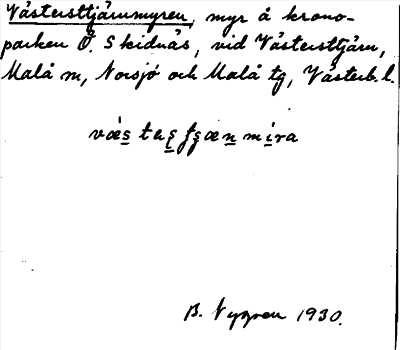 Västersttjärnmyren, myr å krono-
parken Ö. Skidnäs, vid Västersttjärn,
Malå m, Norsjö och Malå tg, Västerb. l.
B. Nygren 1930.